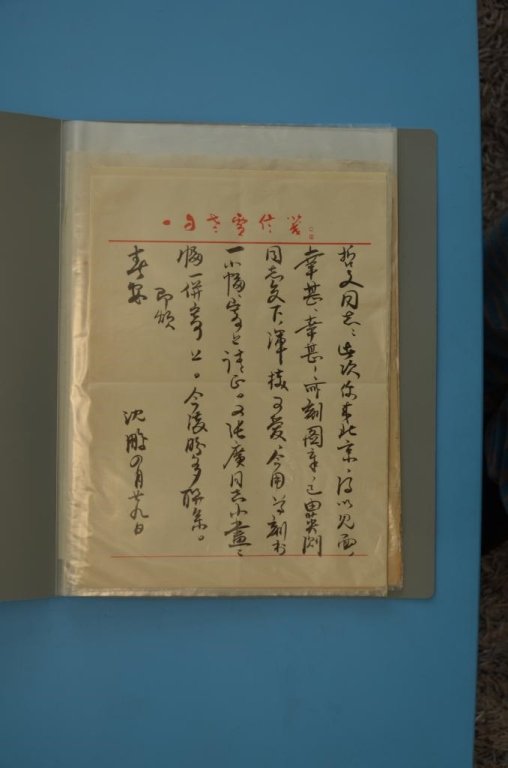 哲文同志：此次你来北京，得以见面，
幸甚、幸甚！所刻图章，已由吴渊
同志交下，浑朴可爱，今用为刻书
一小幅，寄上请正。又张广同志小画一
幅一併寄上。今后盼多联系。
即颂
春安
沈鹏 四月廿九日